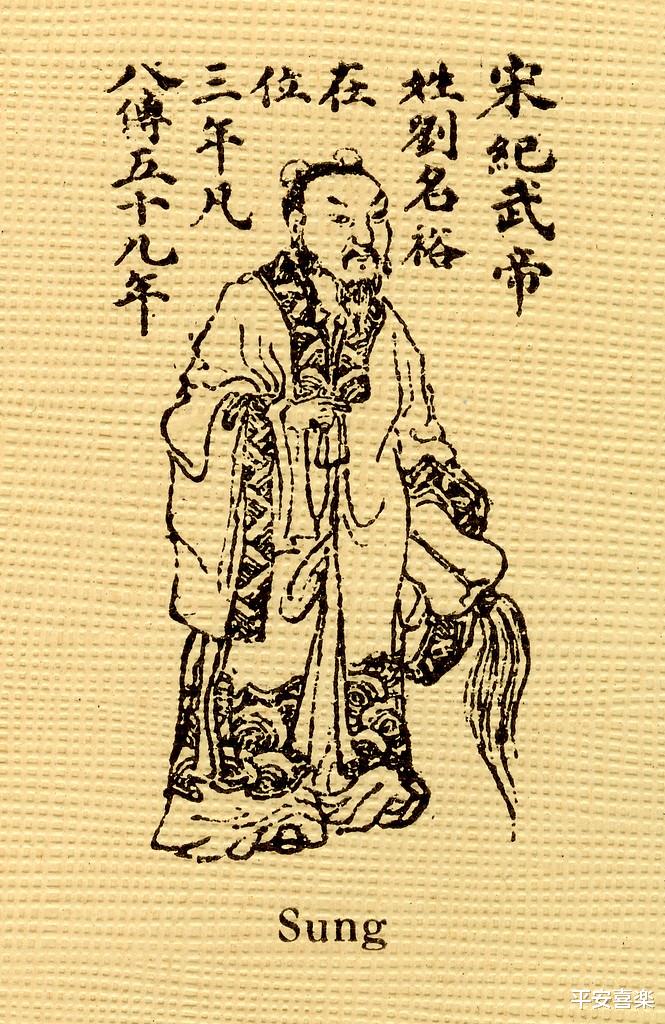 宋紀武帝
姓劉名裕
在
位
三年凡
八傳五十九年
Sung
平安喜樂